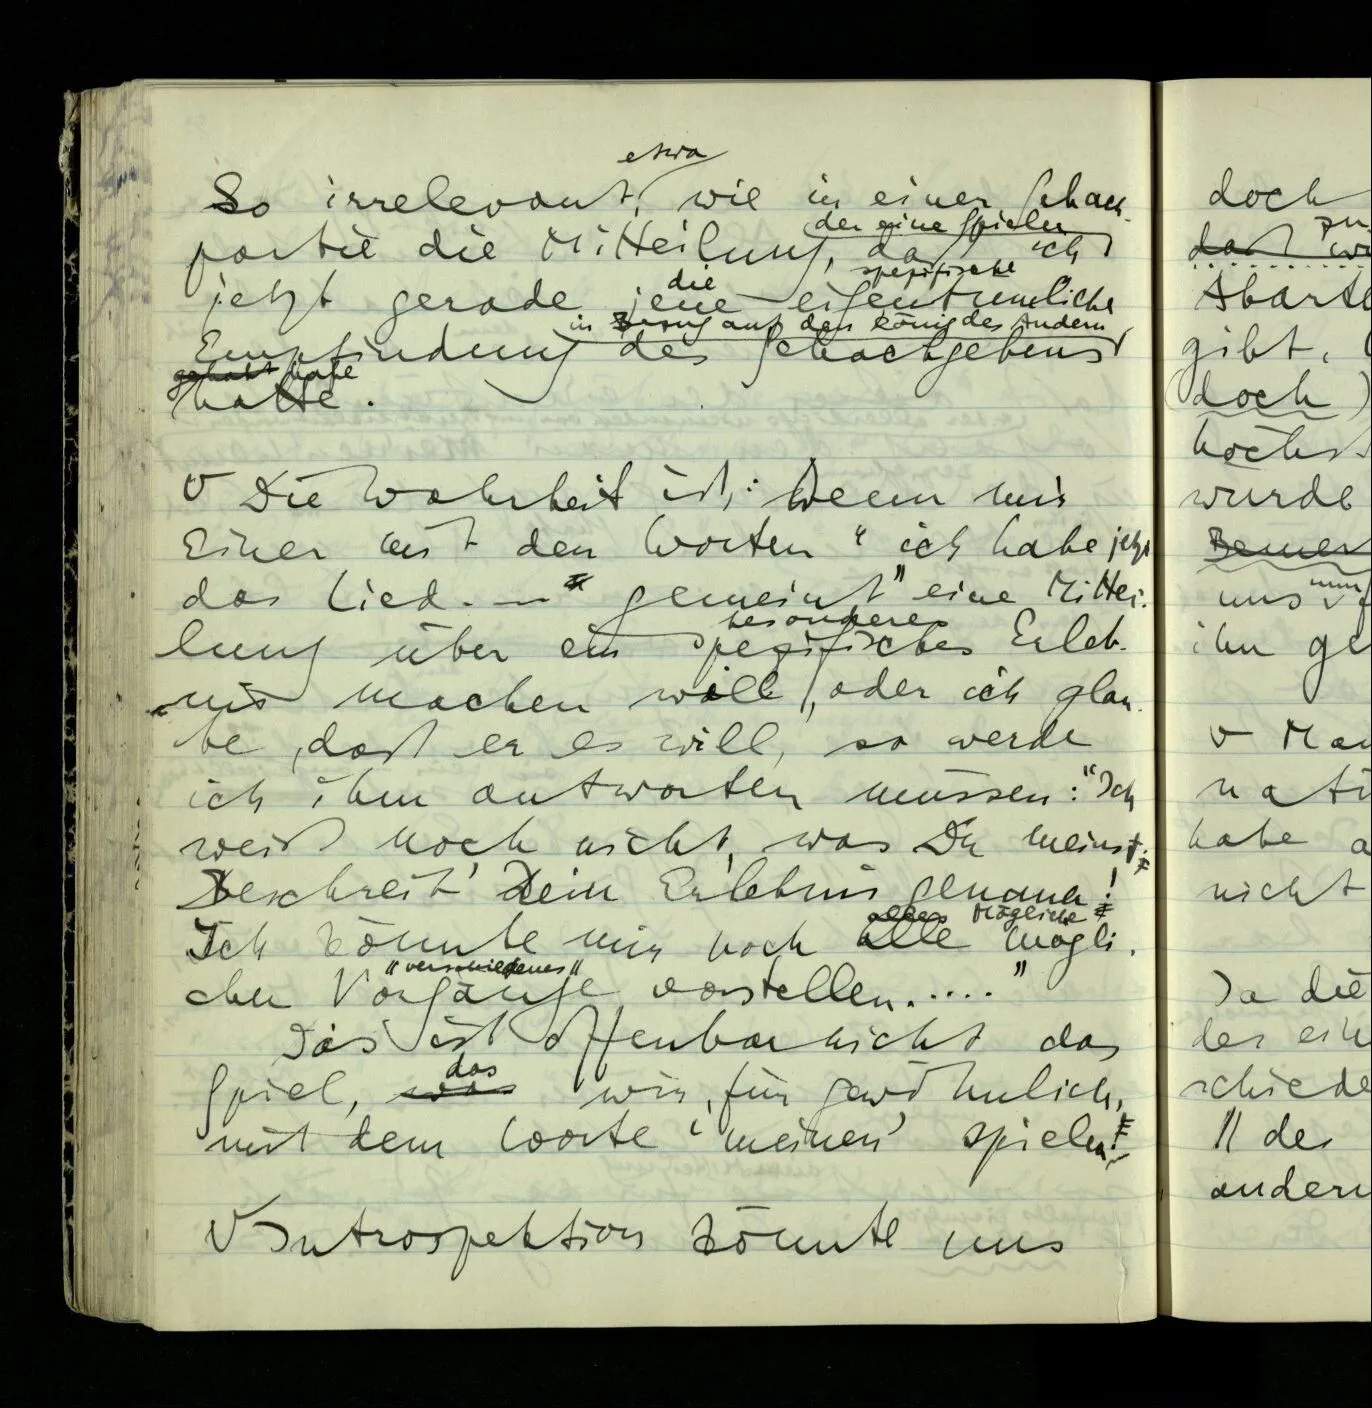 etwa
So irrelevant, wie in einer Schach-
der eine Spieler
partie die Mitteilung, daß ich
die spezifische
jetzt gerade jene eigentümliche
in Bezug auf den König des Andern
Empfindung des Schachgebens
gehabt habe
hatte.
∨ Die Wahrheit ist: Wenn mir
Einer mit den Worten “ich habe jetzt
das Lied . — gemeint” eine Mittei-
besonderes
lung über ein spezifisches Erleb-
nis machen will, oder ich glau-
be, daß er es will, so werde
ich ihm antworten müssen: “Ich
weiß noch nicht, was Du meinst;
Beschreib' Dein Erlebnis genauer!
alles Mögliche
Ich könnte mir noch alle mögli-
“verschiedenes”
chen Vorgänge vorstellen.....”
Das ist offenbar nicht das
das
Spiel, was wir, für gewöhnlich,
mit dem Worte ‘meinen’ spielen!
∨ Introspektion könnte uns
doch
Abart
gibt,
(doch)
höchs
wurde
Bemer
nun
uns
ihn ge
∨ Man
nati
habe a
nicht
Ja die
der ein
schiede
// der
andern